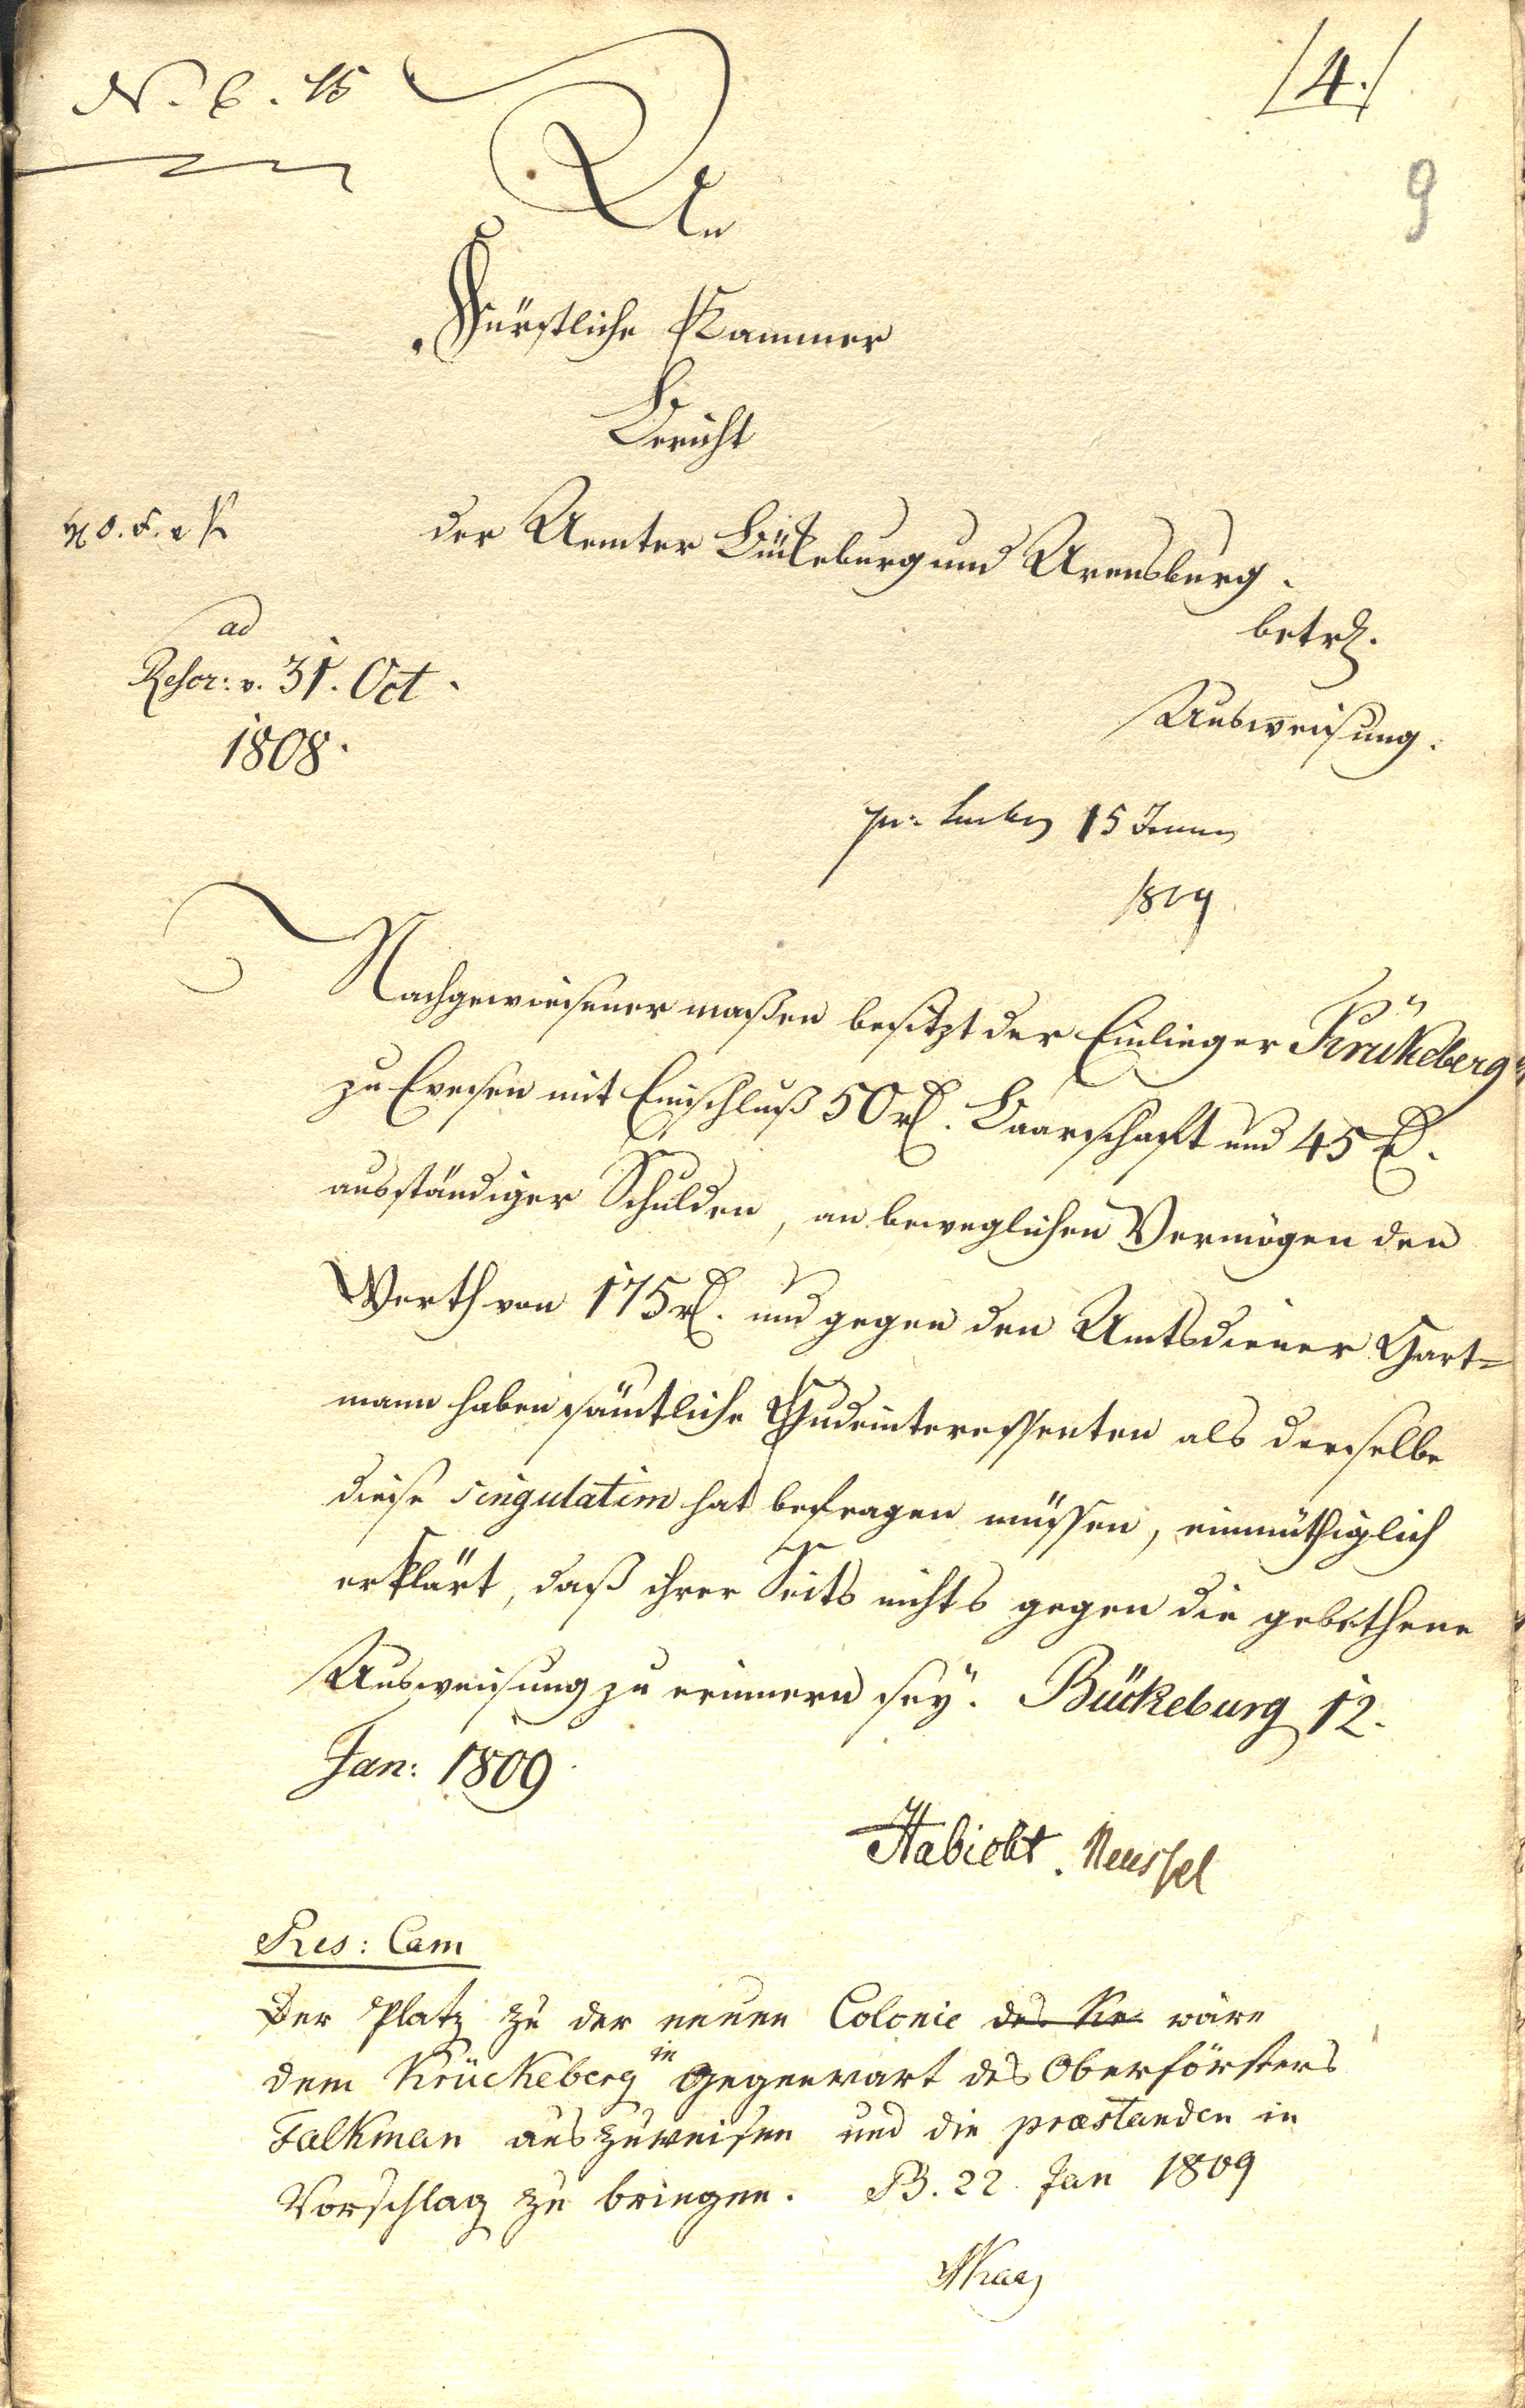 N. 6. 15
/4./
9
An
Fürstliche Kammer
Bericht
der Aemter Bückeburg und Arensburg.
betr.
Ausweisung.
ad
Rescr: v. 31. Oct.
1808.
15
1809
Nachgewiesener maßen besitzt der Einlieger Krükeberg
zu Evesen mit Einschluß 50 rl. Baarschaft und 45 rl.
ausständiger Schulden, an beweglichen Vermögen den
Werth von 175 rl. und gegen den Amtsdiener Hart=
mann haben sämtliche Hudeinteressenten als derselbe
diese singulatim hat befragen müssen, einmüthiglich
erklärt, daß ihrer Seits nichts gegen die gebethene
Ausweisung zu erinnern sey. Bückeburg 12.
Jan: 1809.
Habicht. Meussel
Res: Cam
Der Platz zu der neuen Colonie des Kr wäre
dem Krückeberg in Gegenwart des Oberförsters
Falkman auszuweisen und die præstanden in
Vorschlag zu bringen. B. 22. Jan 1809